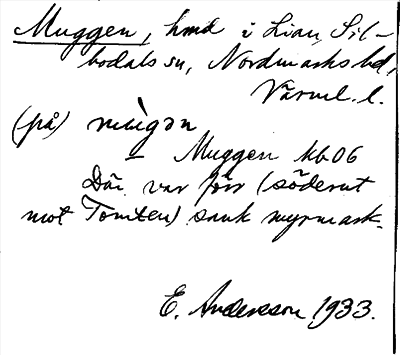 Muggen, hmd i Lian, Sil-
bodals sn, Nordmarks hd,
Värml. l.
(på) mùgən
– Muggen kb 06
Där var förr (söderut
mot Tomten) sank myrmark.
E. Andersson 1933.